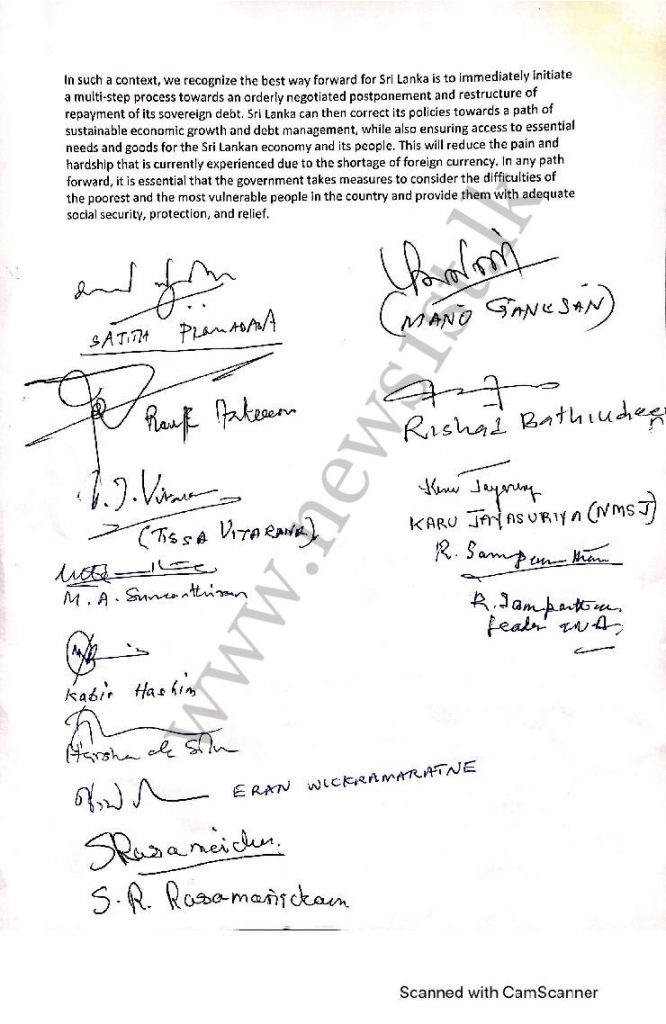 In such a context, we recognize the best way forward for Sri Lanka is to immediately initiate
a multi-step process towards an orderly negotiated postponement and restructure of
repayment of its sovereign debt. Sri Lanka can then correct its policies towards a path of
sustainable economic growth and debt management, while also ensuring access to essential
needs and goods for the Sri Lankan economy and its people. This will reduce the pain and
hardship that is currently experienced due to the shortage of foreign currency. In any path
forward, it is essential that the government takes measures to consider the difficulties of
the poorest and the most vulnerable people in the country and provide them with adequate
social security, protection, and relief.
SAJITH PREMADASA
(MANO GANESAN)
Rauf Hakeem
Rishad Bathiudeen
T. Vitarana
(TISSA VITARANA)
KARU JAYASURIYA (NMSJ)
R. Sampanthan
M. A. Sumanthiran
R. Sampanthan
Leader TNA,
Kabir Hashim
Harsha de Silva
ERAN WICKRAMARATNE
S. R. Rasamanickam
www.news1st.lk
Scanned with CamScanner